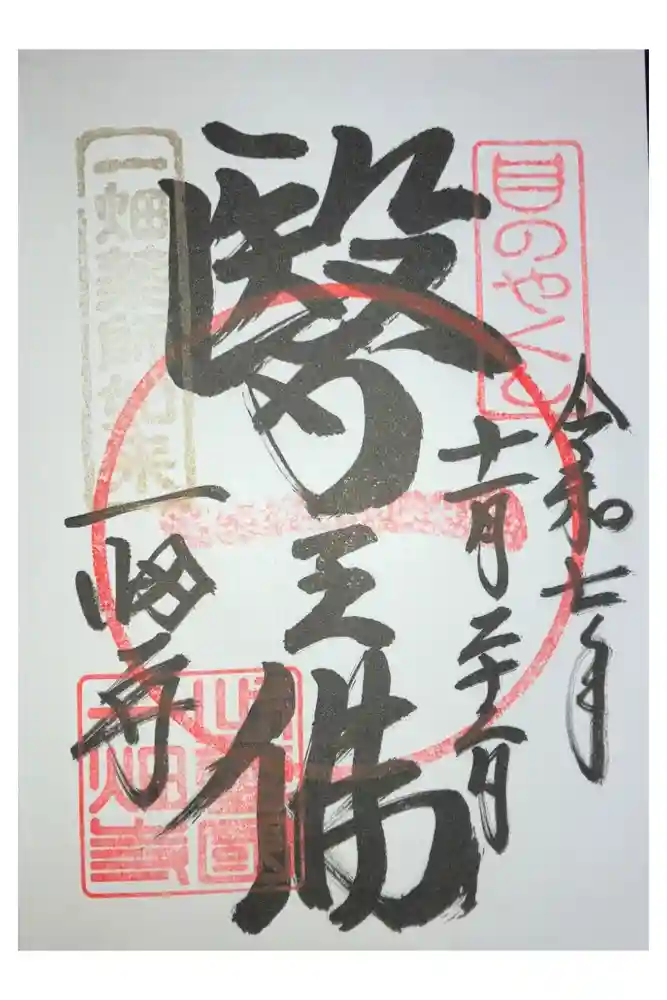 目のやくし
令和七年
十一月二十二日
醫王佛
一畑薬師如来
一畑寺
出雲國
一畑寺